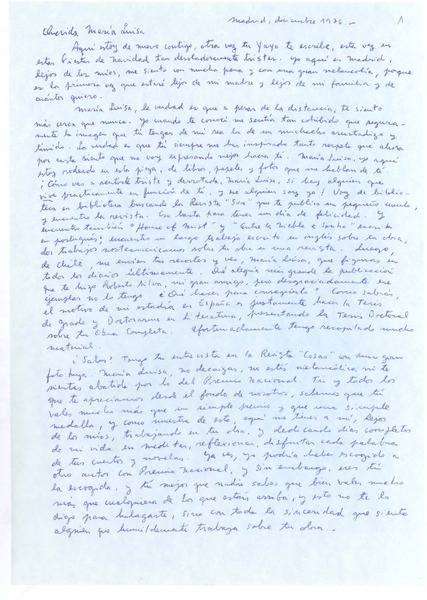 Madrid, diciembre 1976.- 1
Querida María Luisa
Aquí estoy de nuevo contigo, otra vez tu Yayo te escribe, esta vez en
estas Fiestas de navidad tan desoladamente tristes. Yo aquí en Madrid,
lejos de los míos, me siento con mucha pena y con una gran melancolía, porque
es la primera vez que estaré lejos de mi madre y lejos de mi familia y de
cuántos quiero.
María Luisa, la verdad es que a pesar de la distancia, te siento
más cerca que nunca. Yo cuando te conocí me sentía tan cohibido que segura-
mente la imagen que tú tengas de mí sea la de un muchacho asustadizo y
tímido. La verdad es que tú siempre me has inspirado tanto respeto que ahora
por carta siento que me voy expresando mejor hacia ti. María Luisa, yo aquí
estoy rodeado en esta pieza, de libros, papeles y fotos que me hablan de ti.
¡Cómo vas a sentirte triste y derrotada, María Luisa, si hay alguien que
vive prácticamente en función de ti, y ese alguien soy yo! Voy de biblio-
teca en biblioteca buscando la Revista "Sur" que te publica un pequeño cuento,
y encuentro la revista. Eso basta para tener un día de felicidad. Y
encuentro también "House of Mist" y "Entre la niebla e sonho" escrito
en portugués; encuentro un largo trabajo escrito en inglés sobre tu obra,
dos trabajos norteamericanos sobre tu obra en una revista. Luego,
de Chile, me envían tus recortes y veo, María Luisa, que figuras en
todos los diarios últimamente. Qué alegría más grande la publicación
que te hizo Roberto Silva, mi gran amigo, pero desgraciadamente ese
ejemplar no lo tengo ¿Qué hacer para conseguirlo? Como sabrás,
el motivo de mi estadía en España es justamente hacer la Tesis
de grado y Doctorarme en Literatura, presentando la Tesis Doctoral
sobre tu Obra Completa. Afortunadamente tengo recopilado mucho
material.
¡Sabes! Tengo tu entrevista en la Revista "Cosas" con una gran
foto tuya. María Luisa, no decaigas, no estés melancólica ni te
sientas abatida por lo del Premio Nacional. Tú y todos los
que te apreciamos desde el fondo de nosotros, sabemos que tú
vales mucho más que un simple premio y que una simple
medalla, y como muestra de esto, aquí me tienes a mí, lejos
de los míos, trabajando en tu obra, y dedicando días completos
de mi vida en meditar, reflexionar, disfrutar cada palabra
de tus cuentos y novelas. Ya ves, yo podría haber escogido a
otro autor con Premio Nacional, y sin embargo, eres tú
la escogida, y tú mejor que nadie sabes que bien vales mucho
más que cualquiera de los que están arriba, y esto no te lo
digo para halagarte, sino con toda la sinceridad que siente
alguien que humildemente trabaja sobre tu obra.